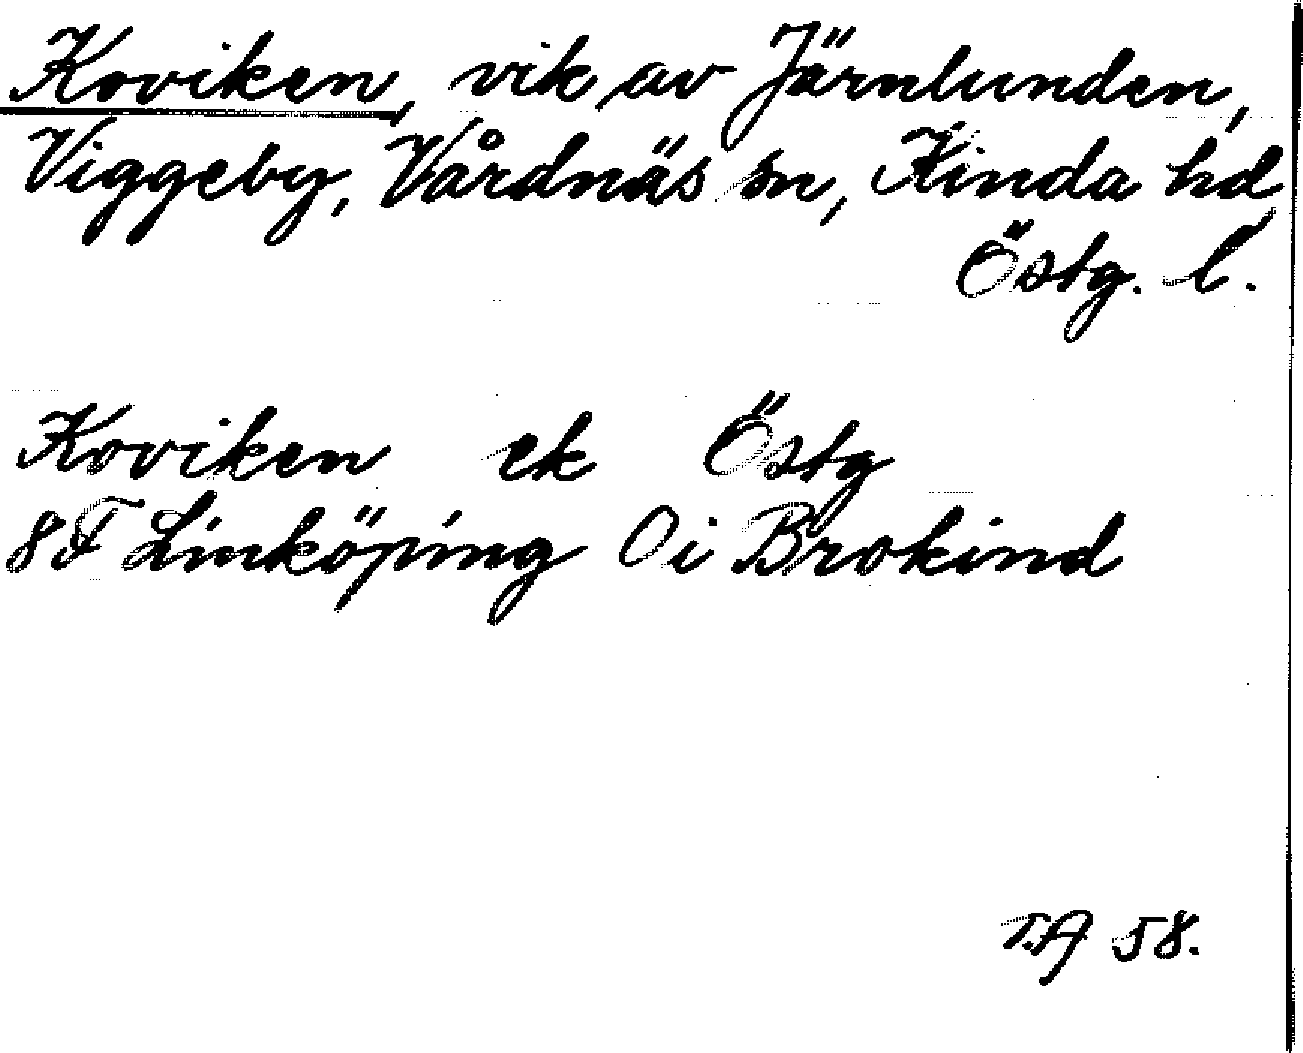 Koviken, vik av Järnlunden,
Viggeby, Vårdnäs sn, Kinda hd,
Östg. l.
Koviken ek Östg
8F Linköping Oi Brokind
T.A 58.